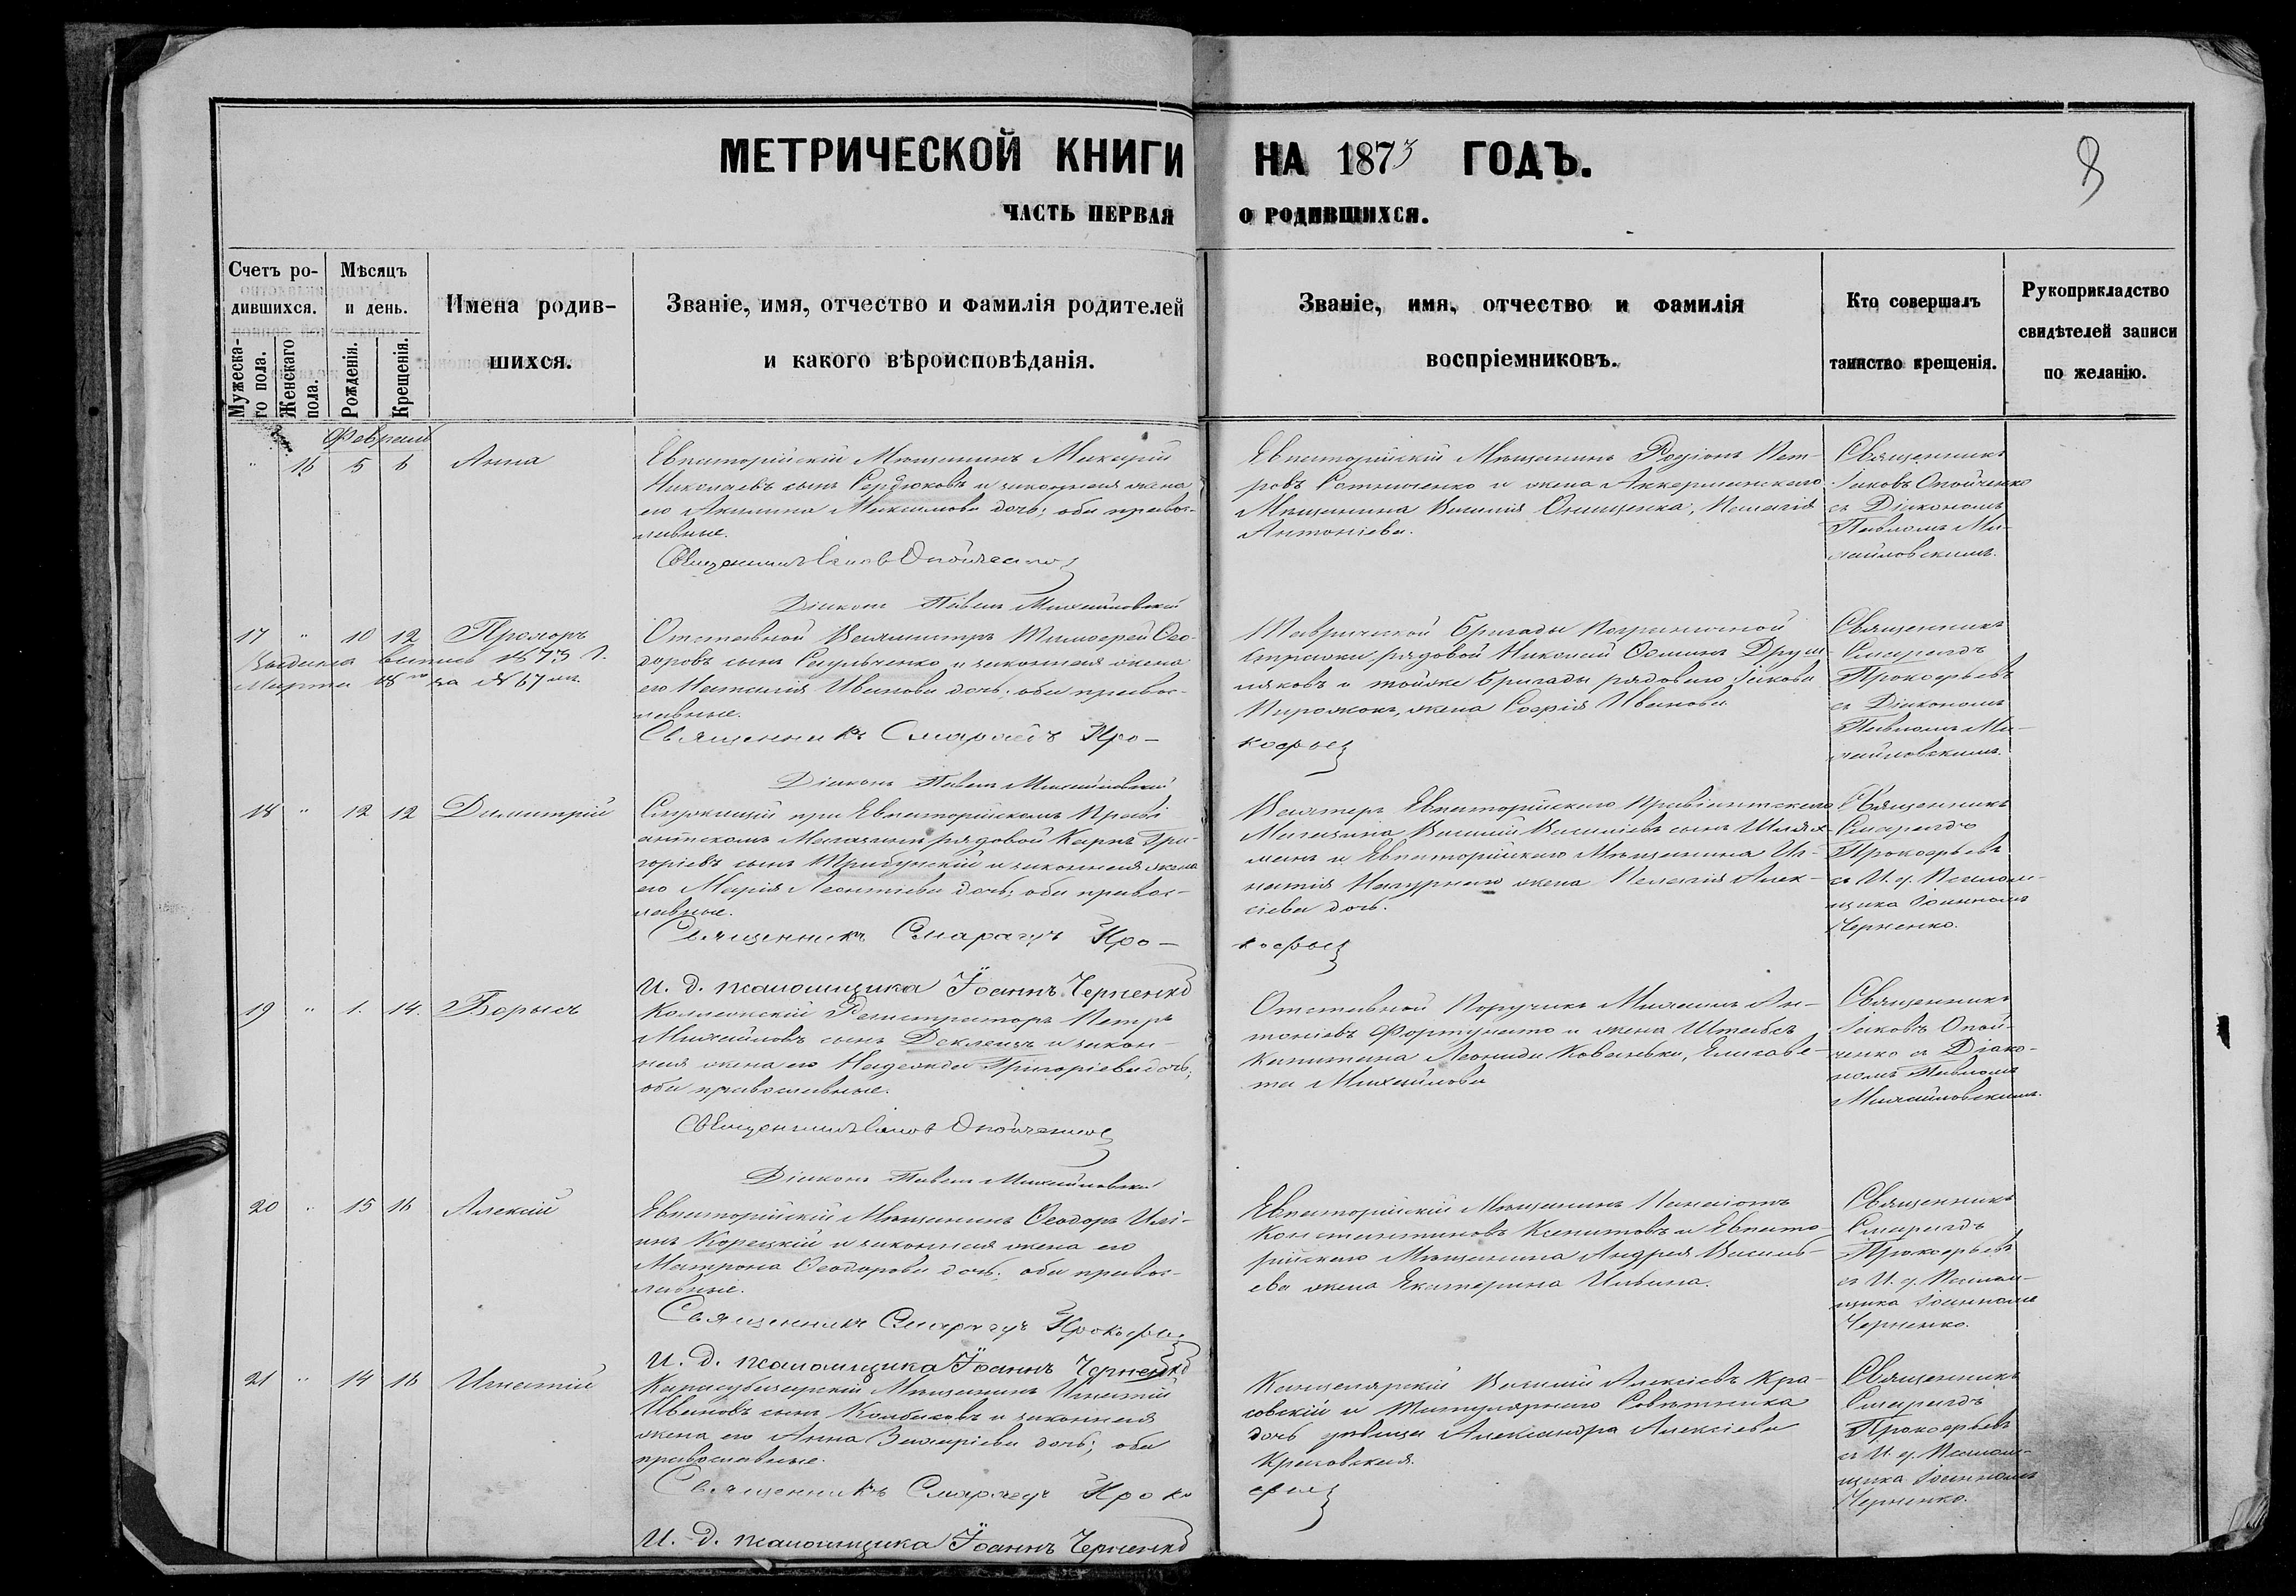 МЕТРИЧЕСКОЙ КНИГИ НА 1873 ГОДЪ.
8
ЧАСТЬ ПЕРВАЯ О РОДИВШИХСЯ.
Счетъ родившихся.
Мужескаго пола.
Женскаго пола.
Мѣсяцъ и день.
Рожденія.
Крещенія.
Имена родившихся.
Званіе, имя, отчество и фамилія родителей
и какого вѣроисповѣданія.
Званіе, имя, отчество и фамилія
воспріемниковъ.
Кто совершалъ
таинство крещенія.
Рукоприкладство
свидѣтелей записи
по желанію.
Февраль
" 16 5 6 Анна
Евпаторійскій Мѣщанинъ Макарій
Николаевъ сынъ Сердюковъ и законная жена
его Акилина Максимова дочь; оба православные.
Священникъ Іаковъ Опойченко
Діаконъ Павелъ Михайловскій
Евпаторійскій Мѣщанинъ Родіонъ Петровъ
и жена Аккерманскаго
Мѣщанина Василія Онищенка, Пелагія
Антоніева.
Священникъ
Іаковъ Опойченко
съ Діакономъ
Павломъ Михайловскимъ.
17 " 10 12 Прохоръ
Выдана выпись 1873 г.
Марта 18го за № 67мъ.
Отставной Вахмистръ Тимофей Ѳеодоровъ
сынъ Смульченко и законная жена
его Наталія Иванова дочь; оба православные.
Священникъ Смарагдъ Прокофьев
Діаконъ Павелъ Михайловскій
Таврической Бригады Пограничной
Стражи рядовой Николай Осипъ
и тойже Бригады рядоваго Іакова
жена Софія Иванова
Священникъ
Смарагдъ
Прокофьевъ
съ Діакономъ
Павломъ Михайловскимъ.
18 " 12 12 Димитрій
Служащій при Евпаторійскомъ Провіантскомъ
Магазинѣ рядовой Карпъ Григоріевъ
сынъ Трибунскій и законная жена
его Марія Леонтіева дочь; оба православные.
Священникъ Смарагдъ Прокофьев
И. д. псаломщика Іоаннъ Черненко
Вахтеръ Евпаторійскаго Провіантскаго
Магазина Василій Василіевъ сынъ
и Евпаторійскаго Мѣщанина Игнатія
жена Пелагія Алексіева дочь.
Священникъ
Смарагдъ
Прокофьевъ
съ И. д. Псаломщика
Іоанномъ
Черненко.
19 " 1. 14. Борисъ
Коллежскій Регистраторъ Петръ
Михайловъ сынъ Деклецъ и законная
жена его Надежда Григоріева дочь;
оба православные.
Священникъ Іаковъ Опойченко
Діаконъ Павелъ Михайловскій
Отставной Поручикъ Михаилъ Антоніевъ
Фортунато и жена Штабсъ
Капитана Леонида Кованьки, Елисавета
Михайлова
Священникъ
Іаковъ Опойченко
съ Діакономъ
Павломъ
Михайловскимъ.
20 " 15 16 Алексій
Евпаторійскій Мѣщанинъ Ѳеодоръ
Корецкій и законная жена его
Матрона Ѳеодорова дочь; оба православные.
Священникъ Смарагдъ Прокофьев
И. д. псаломщика Іоаннъ Черненко
Евпаторійскій Мѣщанинъ Панаіотъ
Константиновъ и Евпаторійскаго
Мѣщанина Андрея Васильева
жена Екатерина Ильина.
Священникъ
Смарагдъ
Прокофьевъ
съ И. д. Псаломщика
Іоанномъ
Черненко.
21 " 14 16 Игнатій
Карасубазарскій Мѣщанинъ Игнатій
Ивановъ сынъ Колбасовъ и законная
жена его Анна Захаріева дочь; оба
православные.
Священникъ Смарагдъ Прокофьев
И. д. псаломщика Іоаннъ Черненко
Канцелярскій Василій Алексіевъ Красовскій
и Титулярнаго Совѣтника
дочь дѣвица Александра Алексіева
Красовская.
Священникъ
Смарагдъ
Прокофьевъ
съ И. д. Псаломщика
Іоанномъ
Черненко.